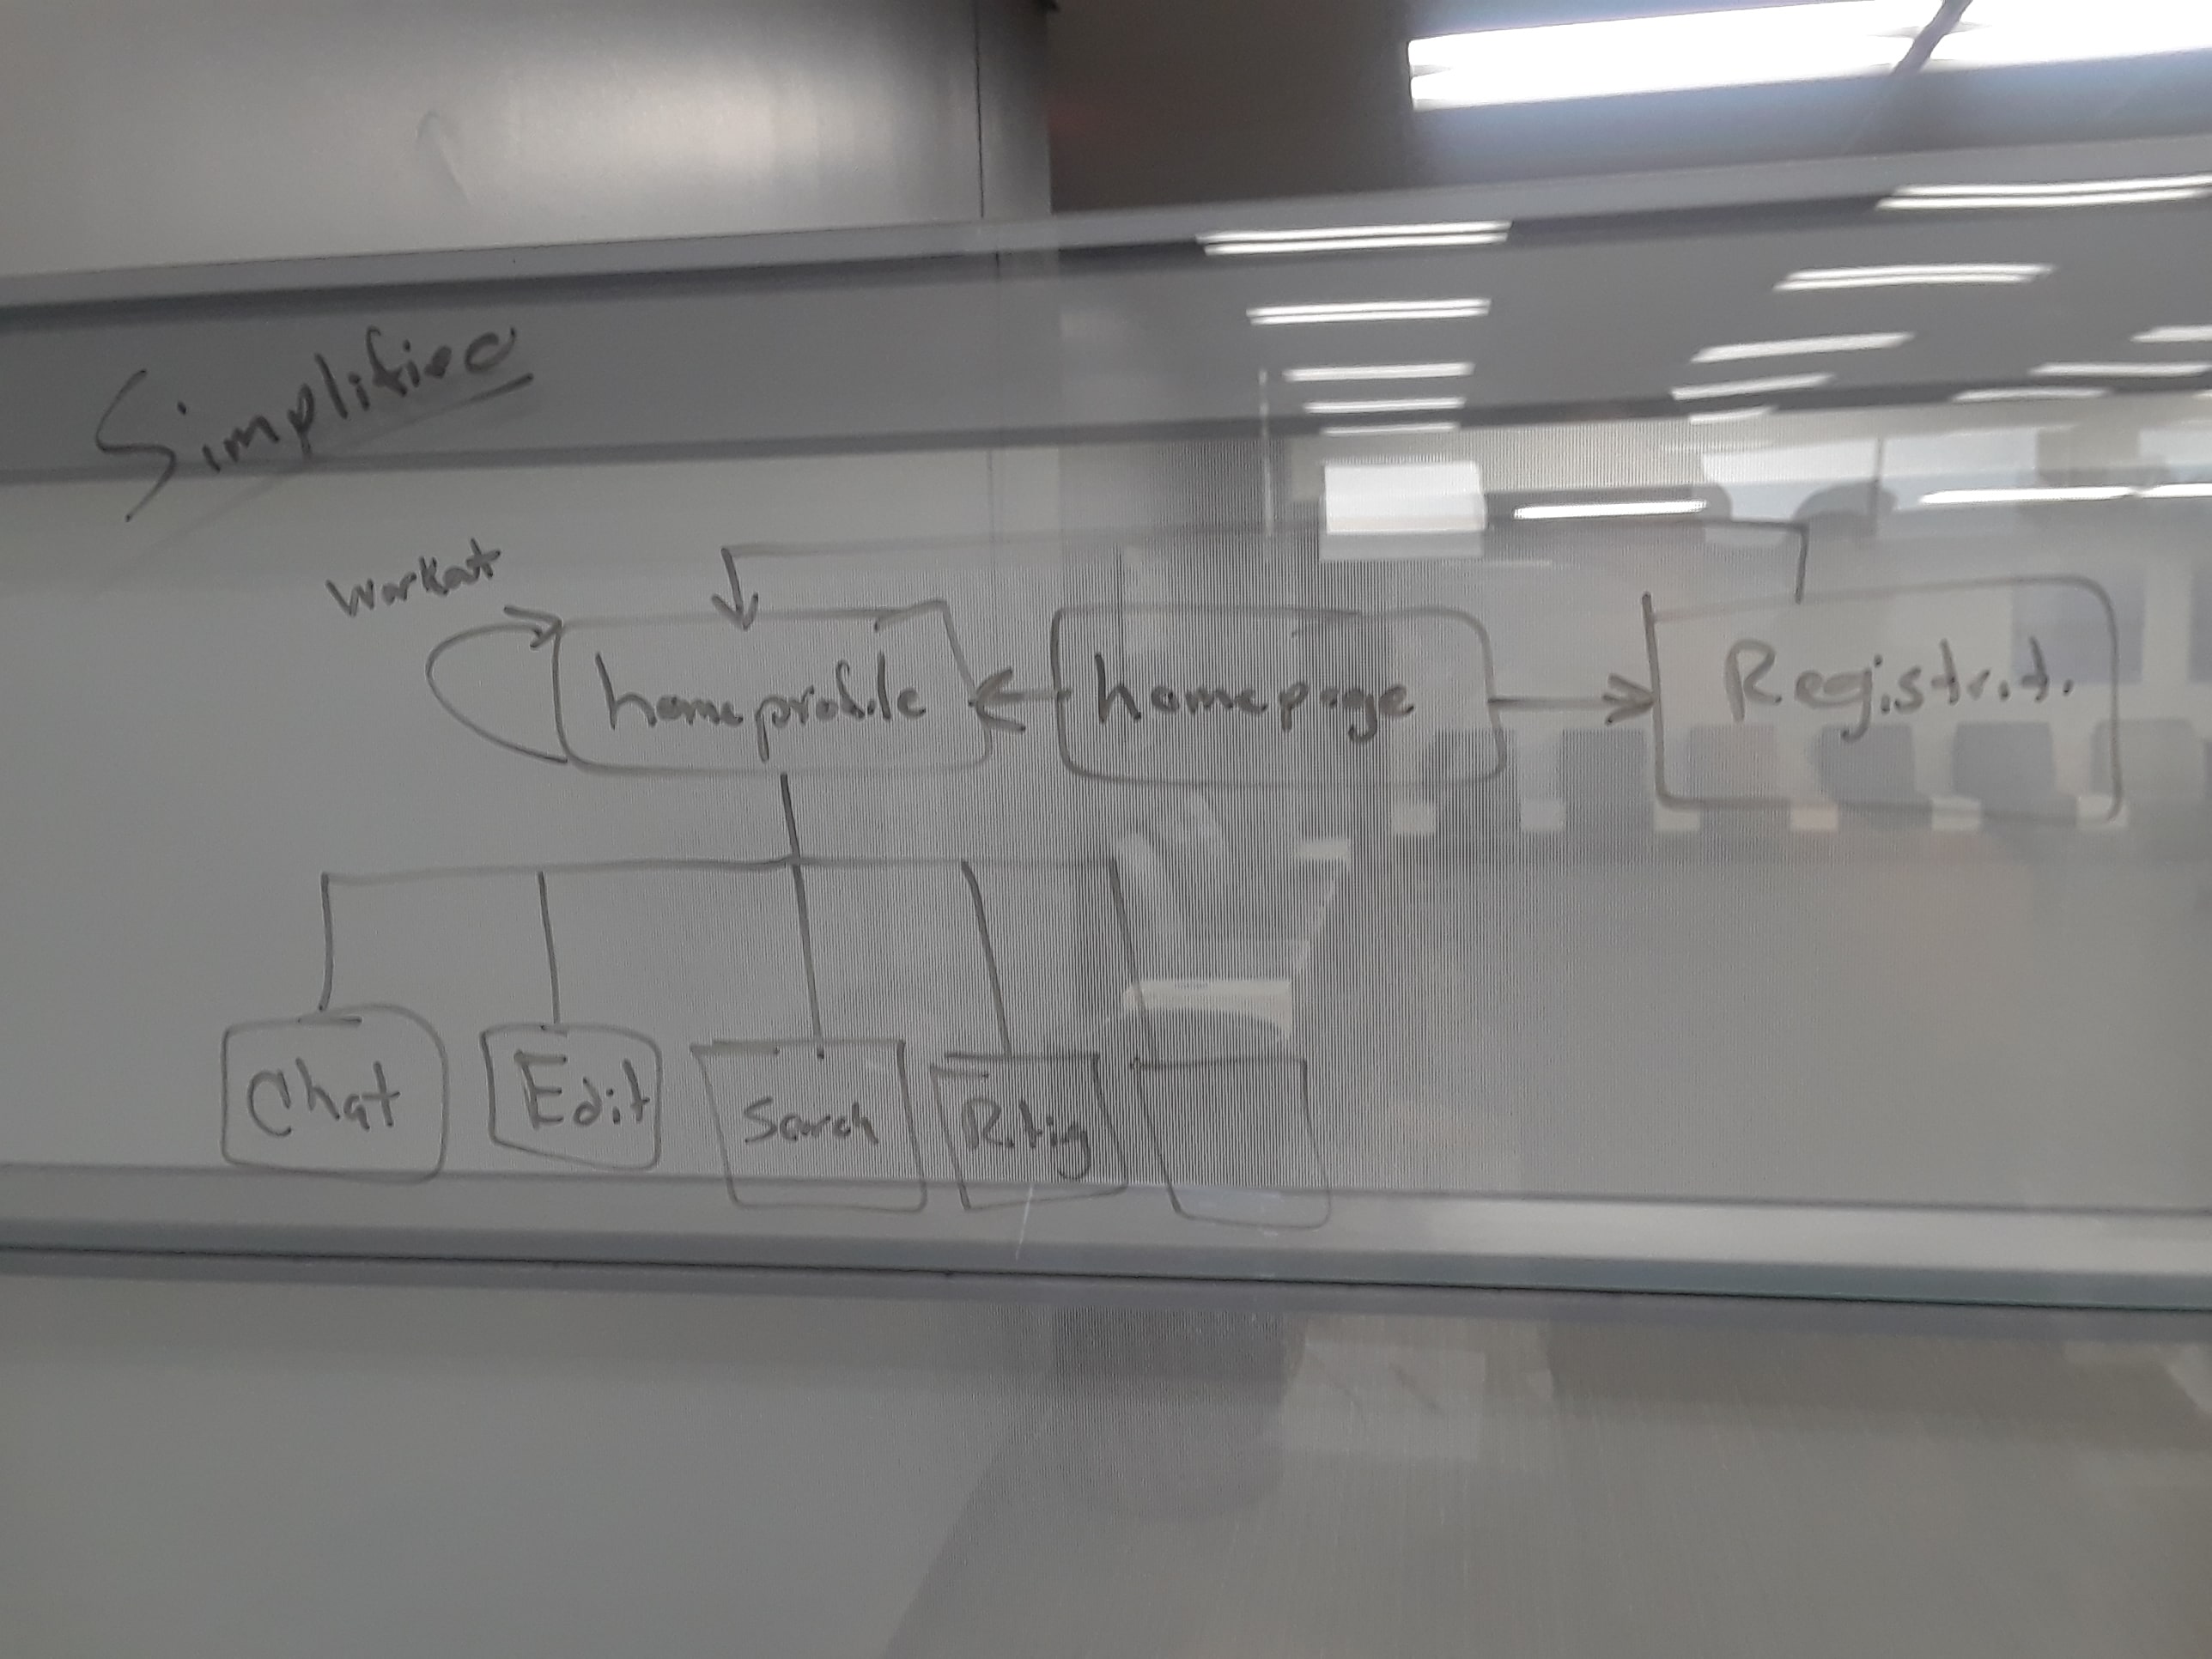 Simplified
Workout
homeprofile
homepage
Registrat.
Chat
Edit
Search
Rating